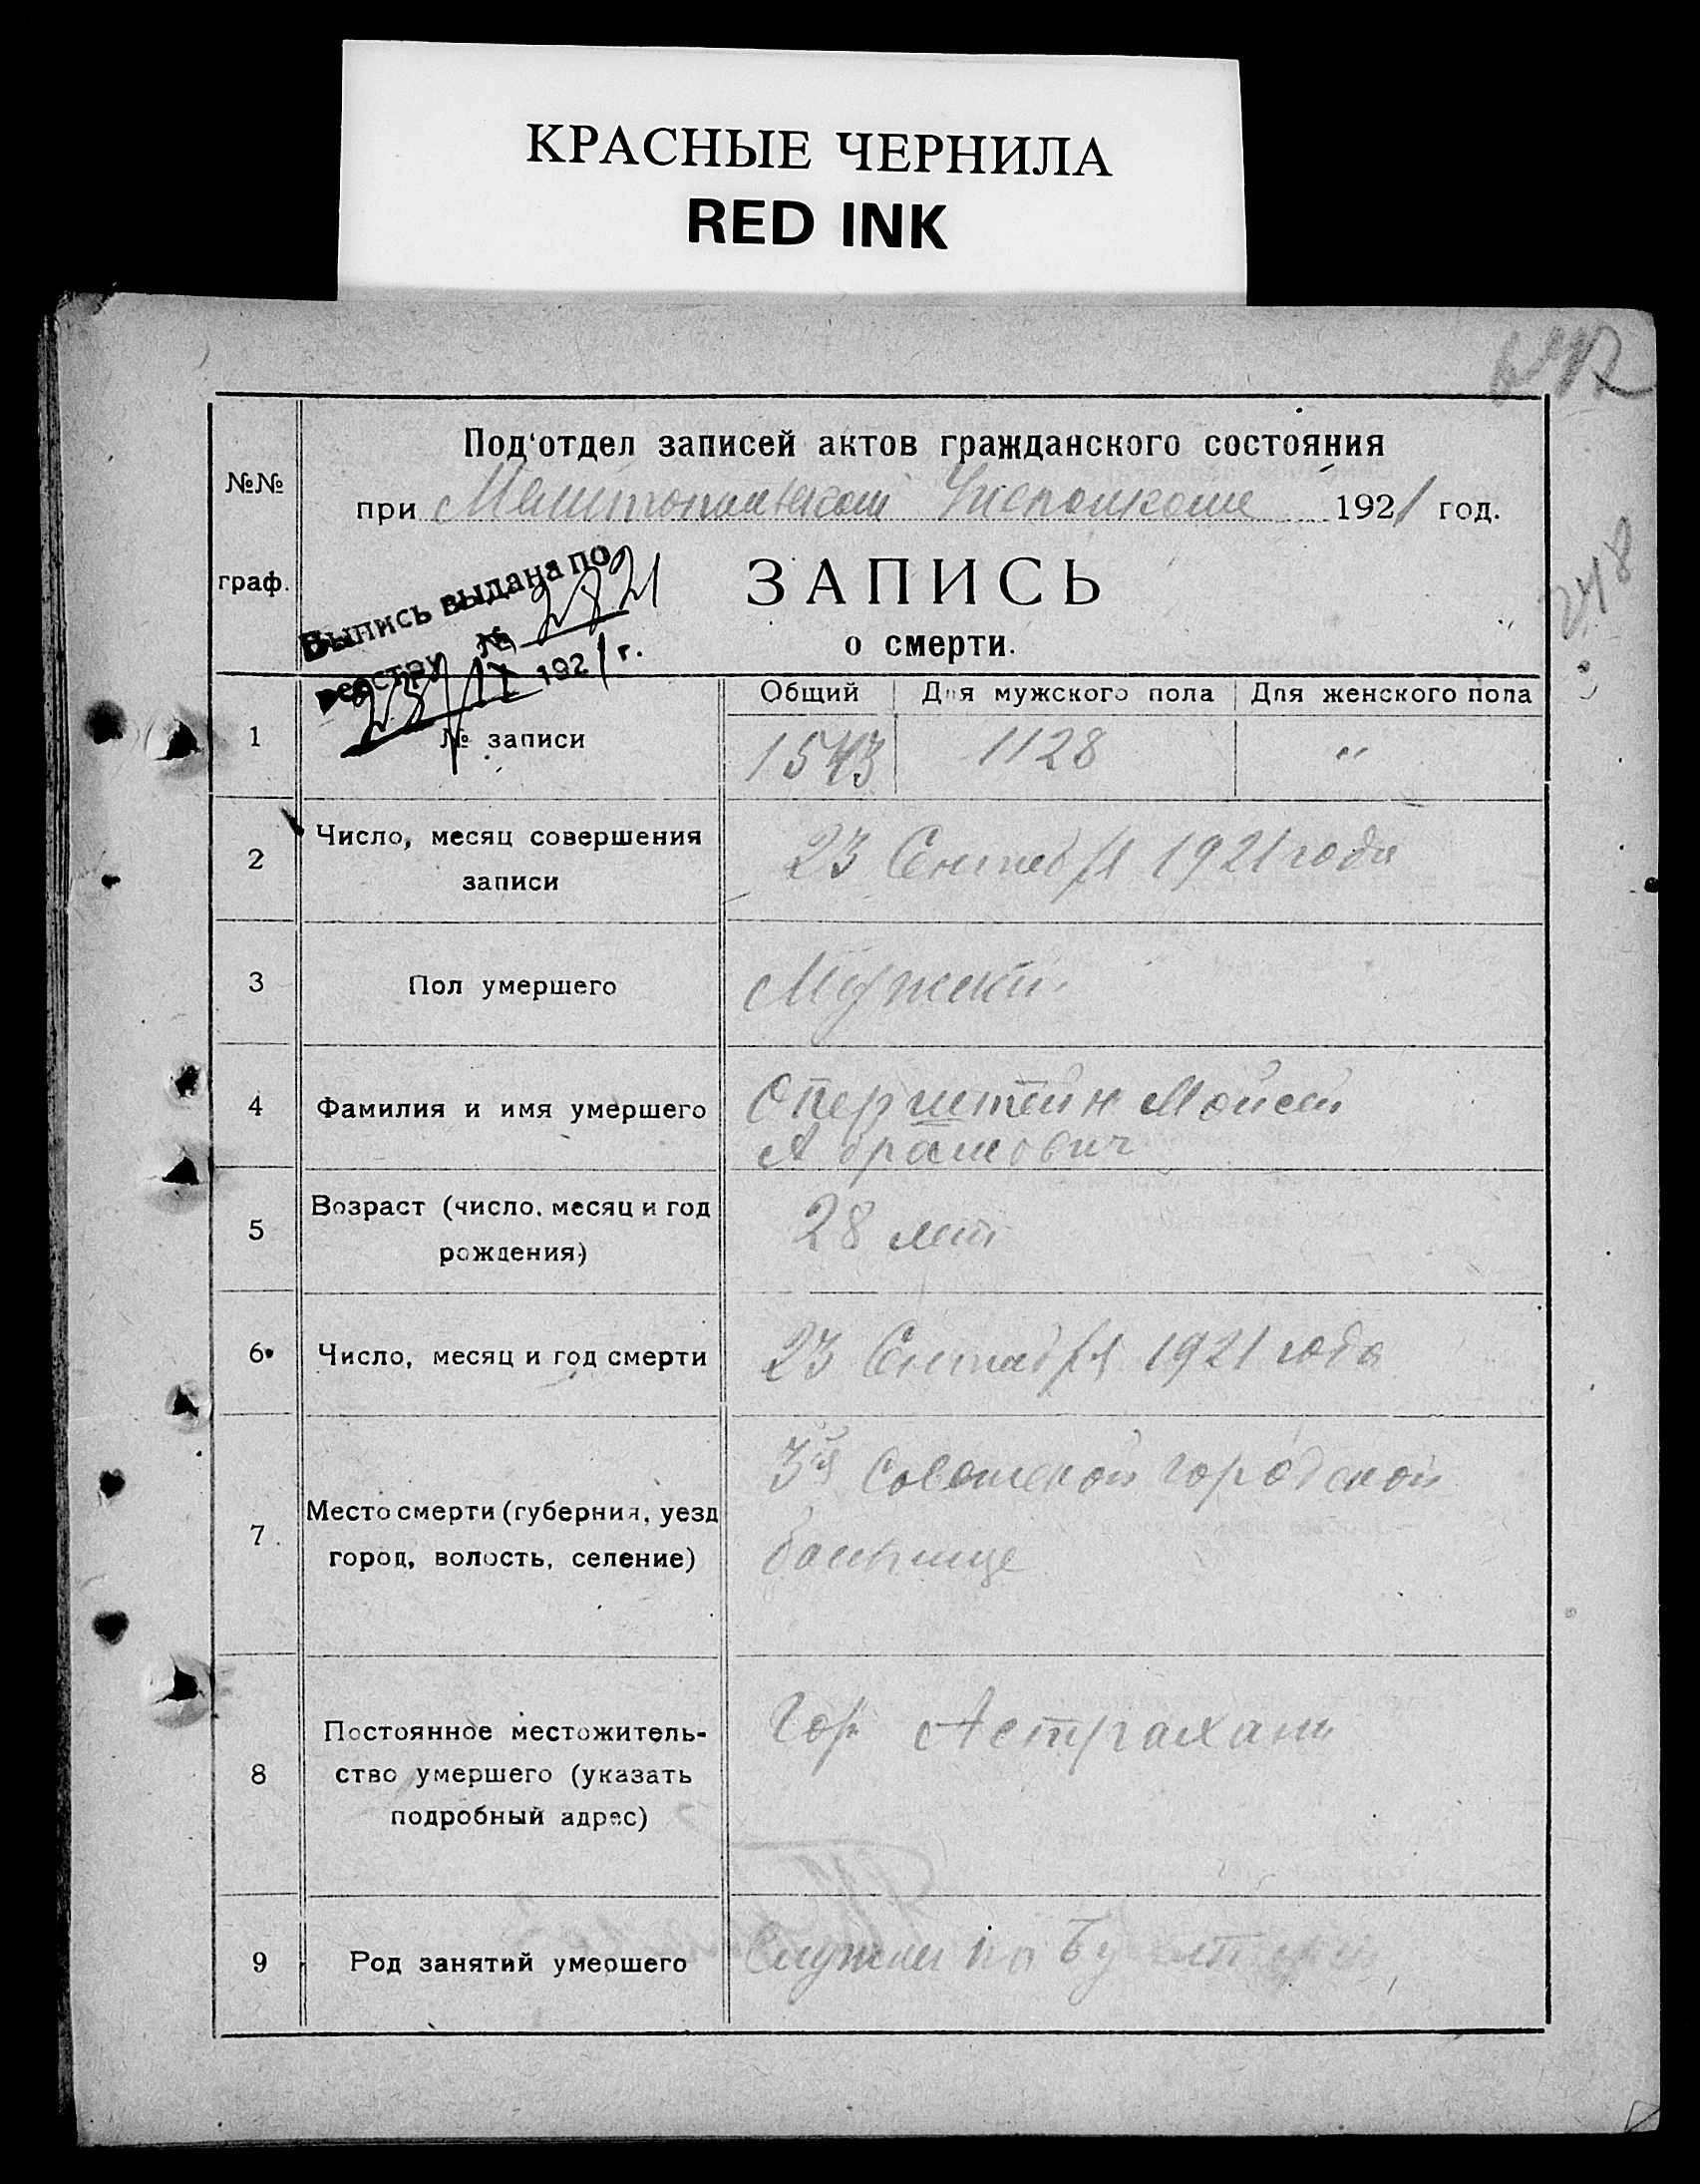 КРАСНЫЕ ЧЕРНИЛА
RED INK
Под‘отдел записей актов гражданского состояния
№№
при Мелитопольском Исполкоме 1921 год.
граф.
Выпись выдана по
реестру № 2821
23/IX 1921 г.
ЗАПИСЬ
о смерти.
248
Общий Для мужского пола Для женского пола
1 № записи 1543 1128 "
2 Число, месяц совершения
записи
23 Сентября 1921 года
3 Пол умершего Мужской
4 Фамилия и имя умершего
Оперштейн Моисей
Абрамович
5 Возраст (число, месяц и год
рождения)
28 лет
6 Число, месяц и год смерти 23 Сентября 1921 года
7 Место смерти (губерния, уезд
город, волость, селение)
3й Советской городской
больнице
8 Постоянное местожитель-
ство умершего (указать
подробный адрес)
Гор. Астрахань
9 Род занятий умершего по